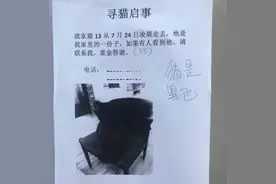 寻猫启事
我家猫 13 从 7 月 24 日晚晨走丢，他是
我家里的一份子，如果有人看到他，请
联系我，重金答谢。
电话：
猫是
黑色